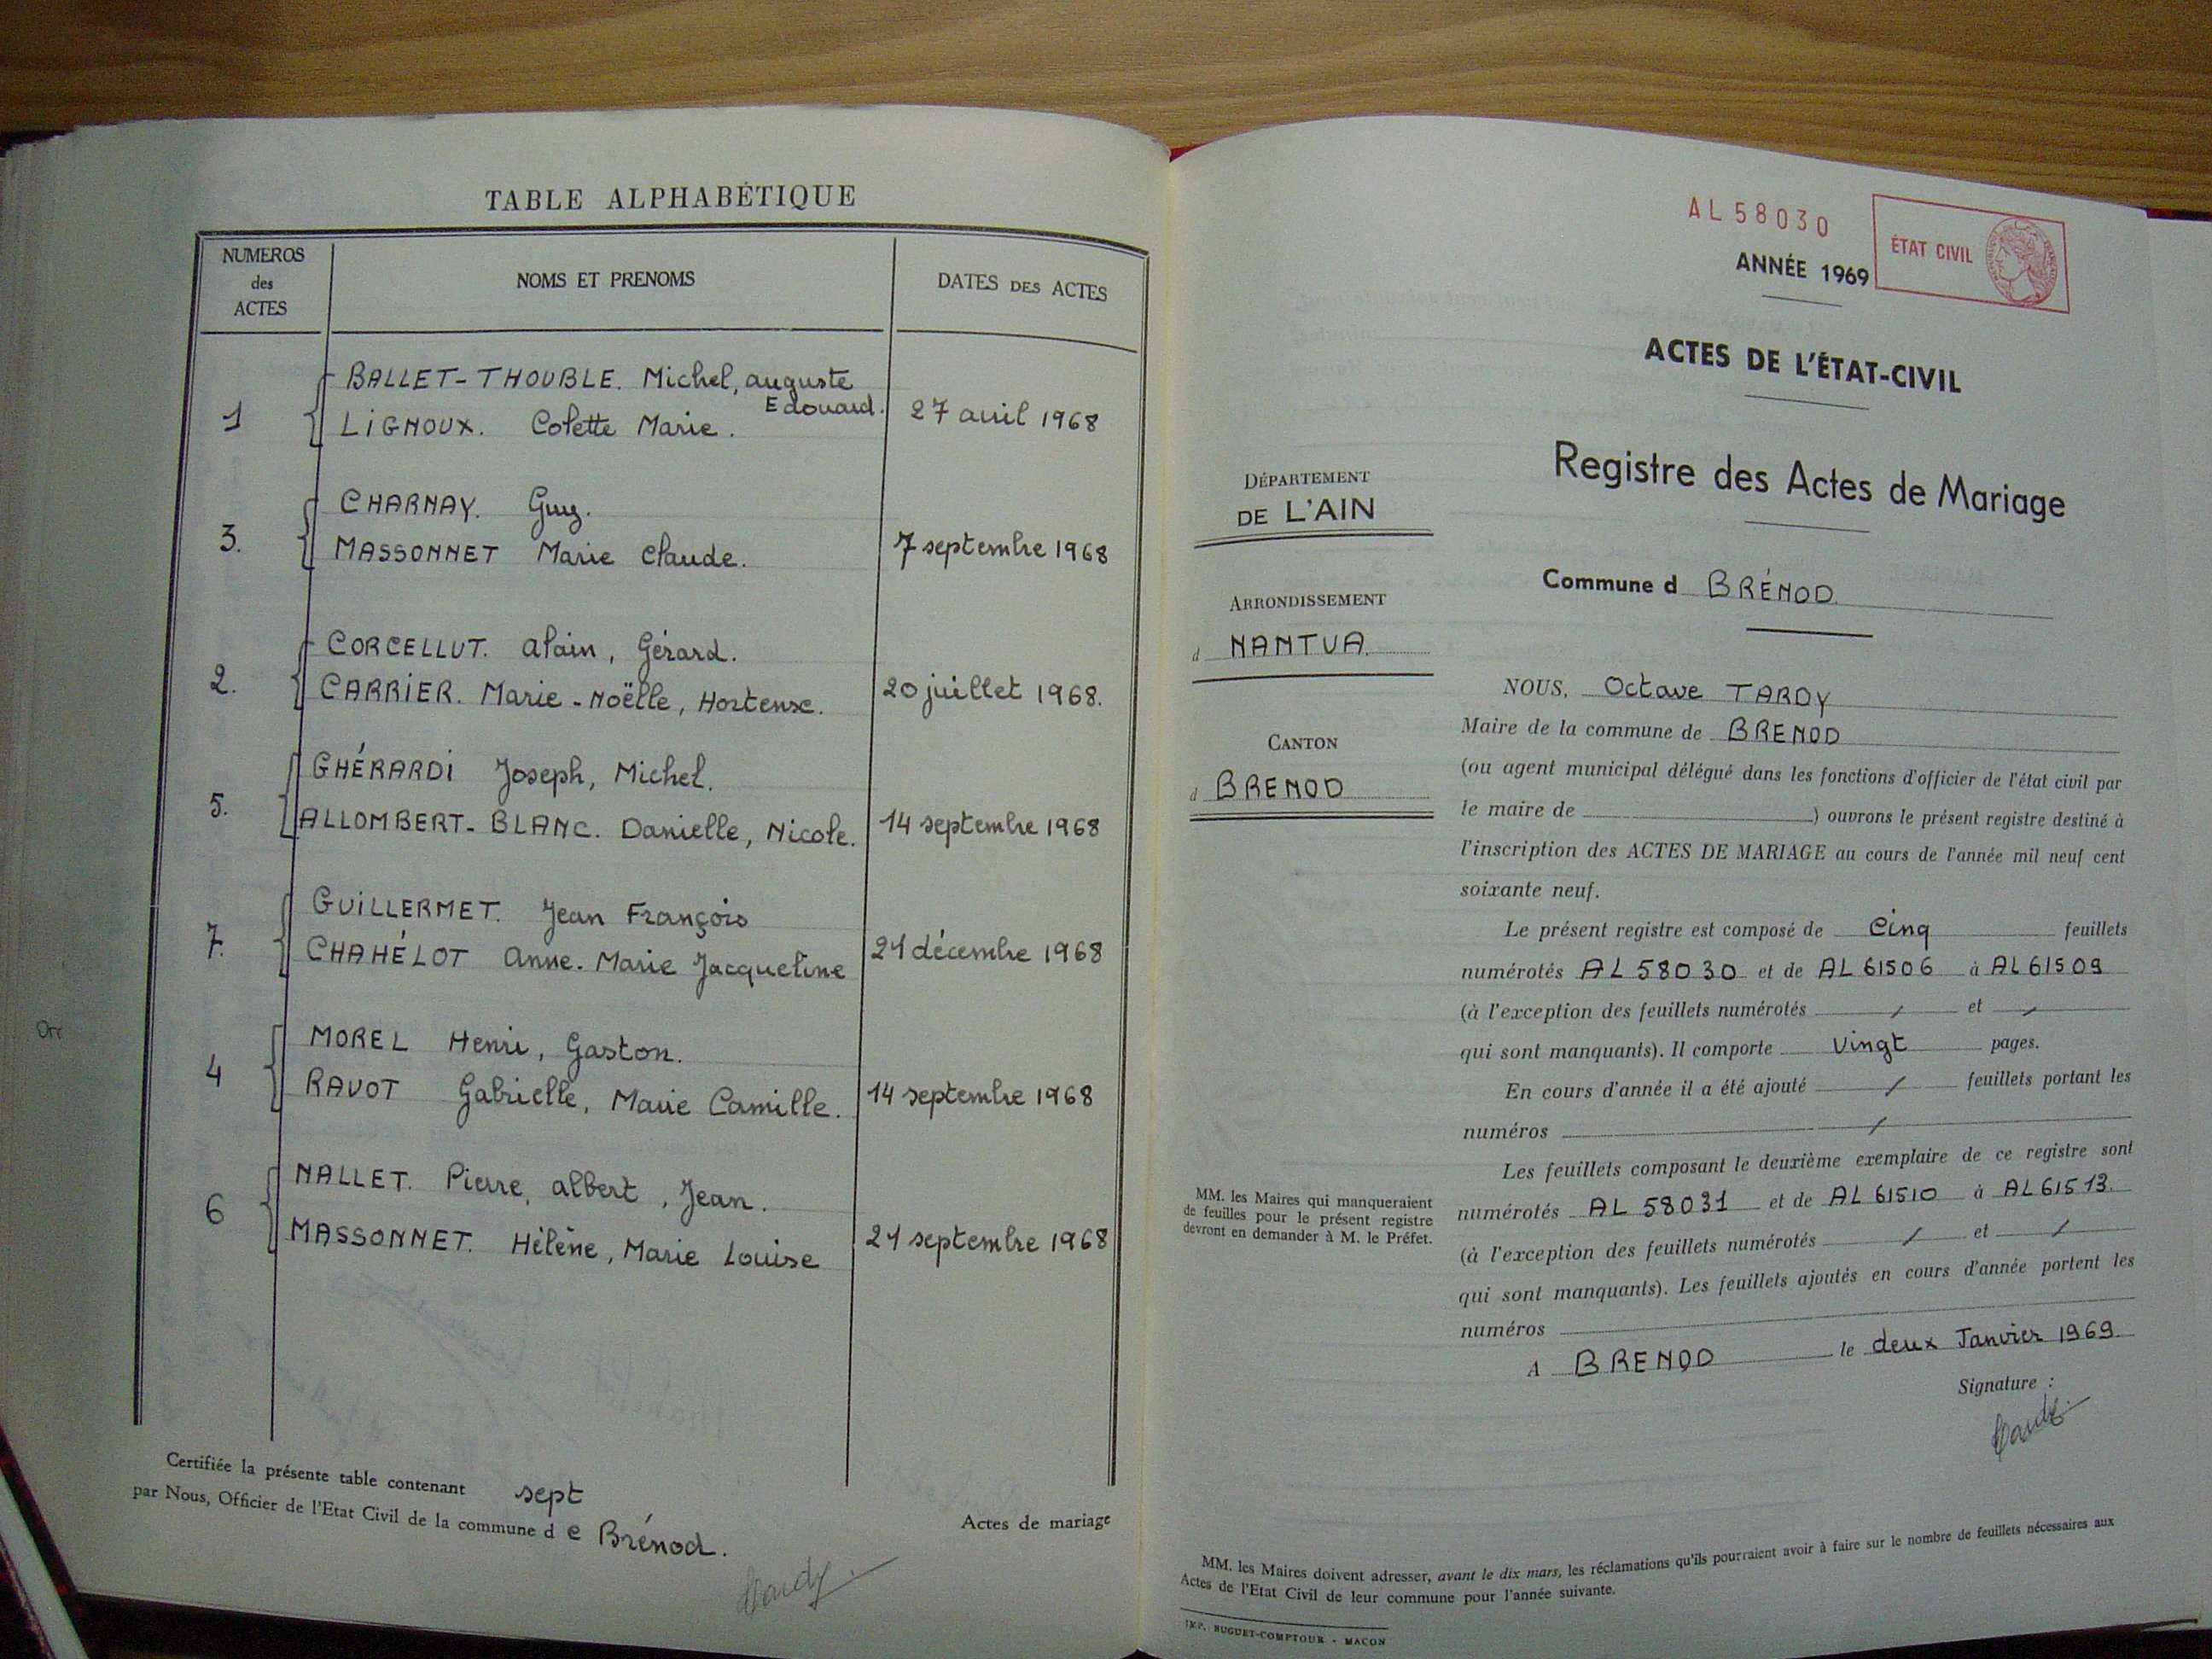 TABLE ALPHABÉTIQUE
NUMEROS
des
ACTES
NOMS ET PRENOMS
DATES DES ACTES
1
BALLET-THOUBLE. Michel, auguste
Edouard.
LIGNOUX. Colette Marie.
27 avril 1968
3.
CHARNAY. Guy.
MASSONNET Marie Claude.
7 septembre 1968
2.
CORCELLUT. Alain, Gérard.
CARRIER. Marie-Noëlle, Hortense.
20 juillet 1968.
5.
GHÉRARDI Joseph, Michel.
ALLOMBERT-BLANC. Danielle, Nicole.
14 septembre 1968
7.
GUILLERMET. Jean François
CHAHÉLOT Anne-Marie Jacqueline
21 décembre 1968
4
MOREL Henri, Gaston.
RAVOT Gabrielle, Marie Camille.
14 septembre 1968
6
NALLET. Pierre, albert, Jean.
MASSONNET. Hélène, Marie Louise
21 septembre 1968
Certifiée la présente table contenant sept
Actes de mariage
par Nous, Officier de l'Etat Civil de la commune de Brénod.
Tardy
AL 58030
ÉTAT CIVIL
ANNÉE 1969
ACTES DE L'ÉTAT-CIVIL
Registre des Actes de Mariage
DÉPARTEMENT
DE L'AIN
Commune d BRÉNOD.
ARRONDISSEMENT
d NANTUA.
CANTON
d BRENOD
NOUS, Octave TARDY
Maire de la commune de BRENOD
(ou agent municipal délégué dans les fonctions d'officier de l'état civil par
le maire de ) ouvrons le présent registre destiné à
l'inscription des ACTES DE MARIAGE au cours de l'année mil neuf cent
soixante neuf.
Le présent registre est composé de Cinq feuillets
numérotés AL 58030 et de AL 61506 à AL 61509
(à l'exception des feuillets numérotés / et /
qui sont manquants). Il comporte vingt pages.
En cours d'année il a été ajouté / feuillets portant les
numéros /
Les feuillets composant le deuxième exemplaire de ce registre sont
numérotés AL 58031 et de AL 61510 à AL 61513.
(à l'exception des feuillets numérotés / et /
qui sont manquants). Les feuillets ajoutés en cours d'année portent les
numéros
A BRENOD le deux Janvier 1969
Signature :
Tardy
MM. les Maires qui manqueraient
de feuilles pour le présent registre
devront en demander à M. le Préfet.
MM. les Maires doivent adresser, avant le dix mars, les réclamations qu'ils pourraient avoir à faire sur le nombre de feuillets nécessaires aux
Actes de l'Etat Civil de leur commune pour l'année suivante.
IMP. BUGUET-COMPTOUR - MACON